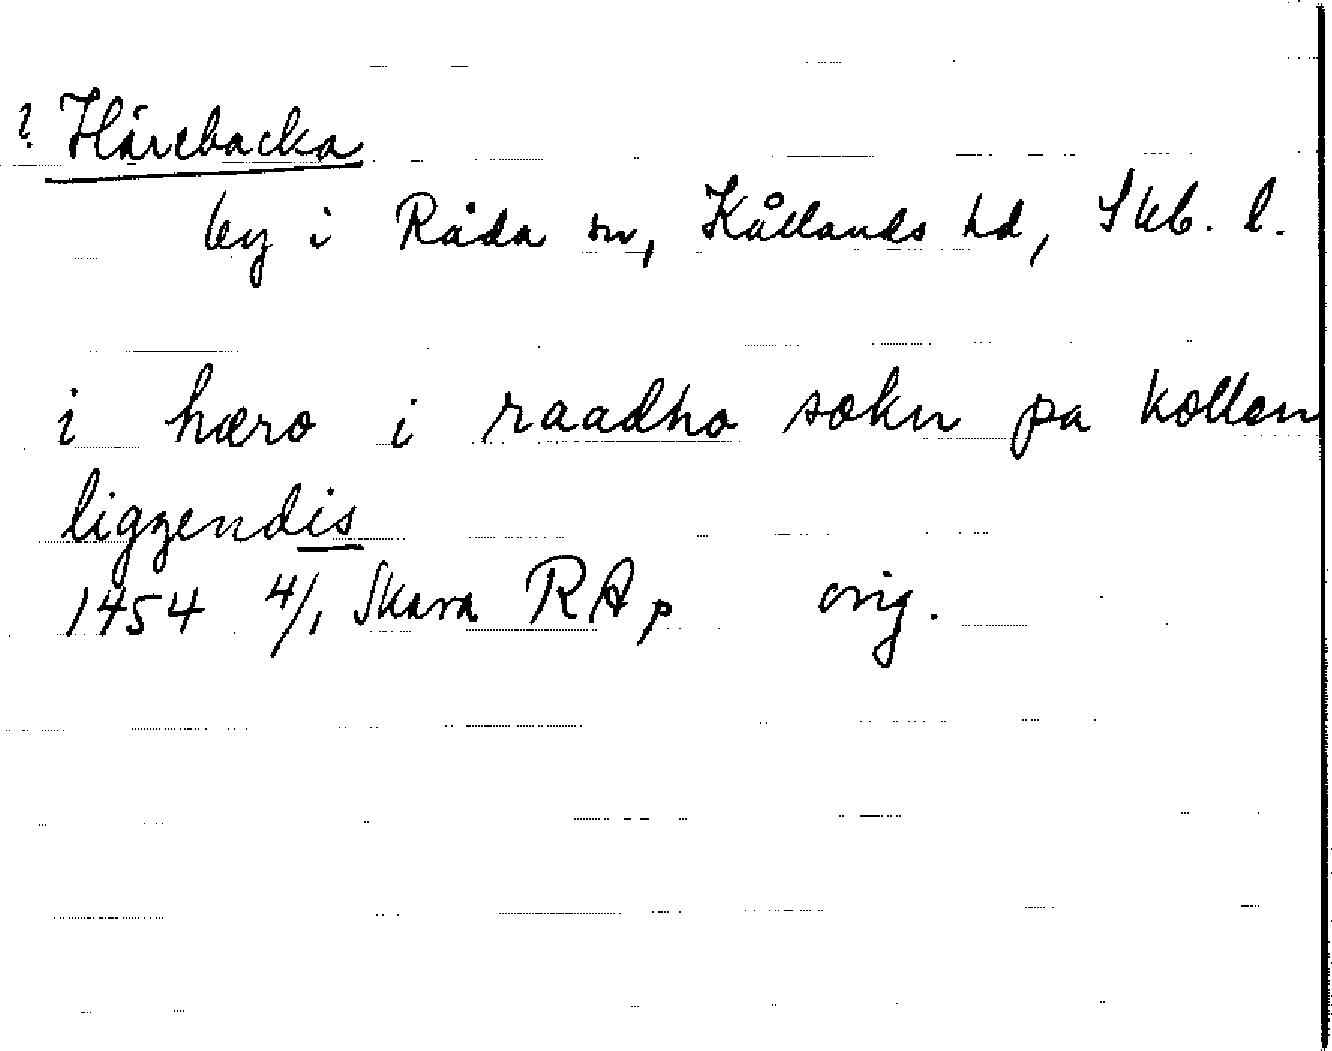 ? Härebacka
by i Råda sn, Kållands hd, Skb. l.
i hæro i raadho sokn pa kollen
liggendis
1454 4/1 Skara RAp orig.